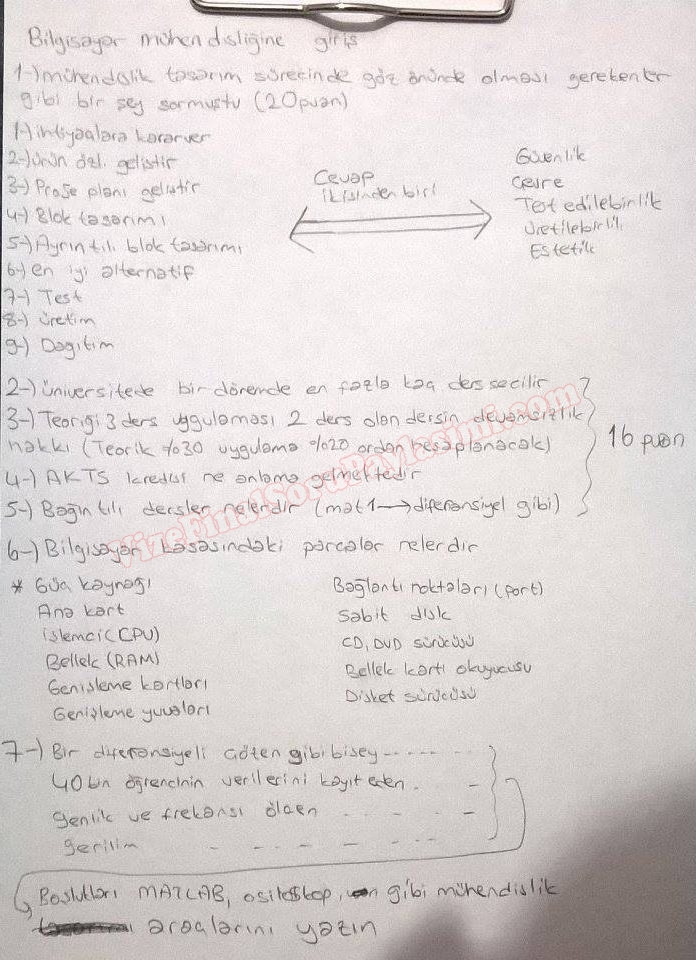 Bilgisayar mühendisliğine giriş
1-) mühendislik tasarım sürecinde göz önünde olması gerekenler
gibi bir şey sormuştu (20 puan)
1-) ihtiyaçlara karar ver
2-) ürün özl. geliştir
3-) Proje planı geliştir
4-) Blok tasarımı
5-) Ayrıntılı blok tasarımı
6-) en iyi alternatif
7-) Test
8-) üretim
9-) Dağıtım
Cevap
ikisinden biri
Güvenlik
Çevre
Test edilebirlik
üretilebirlik
Estetik
2-) üniversitede bir dönemde en fazla kaç ders seçilir
3-) Teoriği 3 ders uygulaması 2 ders olan dersin devamsızlık
hakkı (Teorik %30 uygulama %20 ordan hesaplanacak)
4-) AKTS kredisi ne anlama gelmektedir
5-) Bağıntılı dersler nelerdir (mat1 → diferansiyel gibi)
16 puan
6-) Bilgisayar kasasındaki parçalar nelerdir
* Güç kaynağı
Ana kart
işlemci (CPU)
Bellek (RAM)
Genişleme kartları
Genişleme yuvaları
Bağlantı noktaları (port)
Sabit disk
CD, DVD sürücüsü
Bellek kartı okuyucusu
Disket sürücüsü
7-) Bir diferansiyeli çöten gibi bişey ------
40 bin öğrencinin verilerini kayıt eden . -
genlik ve frekansı ölçen . . . - -
gerilim - - -- - - --
Boşlukları MATLAB, osiloskop, gibi mühendislik
araçlarını yazın
VizeFinalSoruPaylasimi.com